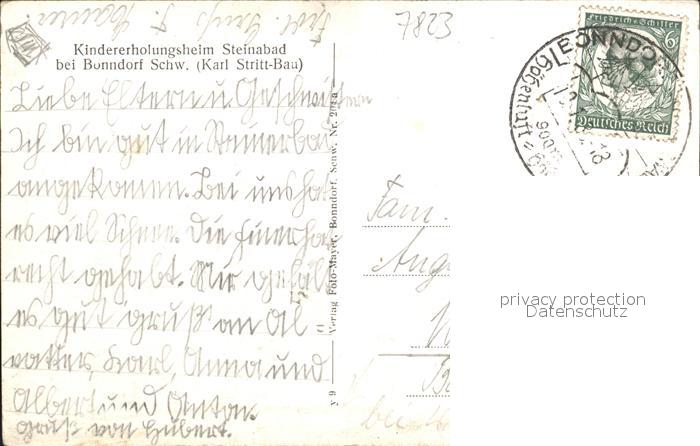 Frdl. Gruß F.
7823
Kindererholungsheim Steinabad
bei Bonndorf Schw. (Karl Stritt-Bau)
Liebe Eltern u. Geschwistern
Ich bin gut in Steinerba
angekommen. Bei uns hat
es viel Schnee. Die
recht gehabt. Mir gefäll
es gut gruß an Al
vatter, Karl, Anna und
Albert und Anton.
Gruß von Hubert.
y 9 Verlag Foto-Mayer, Bonndorf, Schw. Nr. 244a
Friedrich v. Schiller
6
Deutsches Reich
BONNDO
Höhenluft
900
Fam.
Ang
bei
privacy protection
Datenschutz